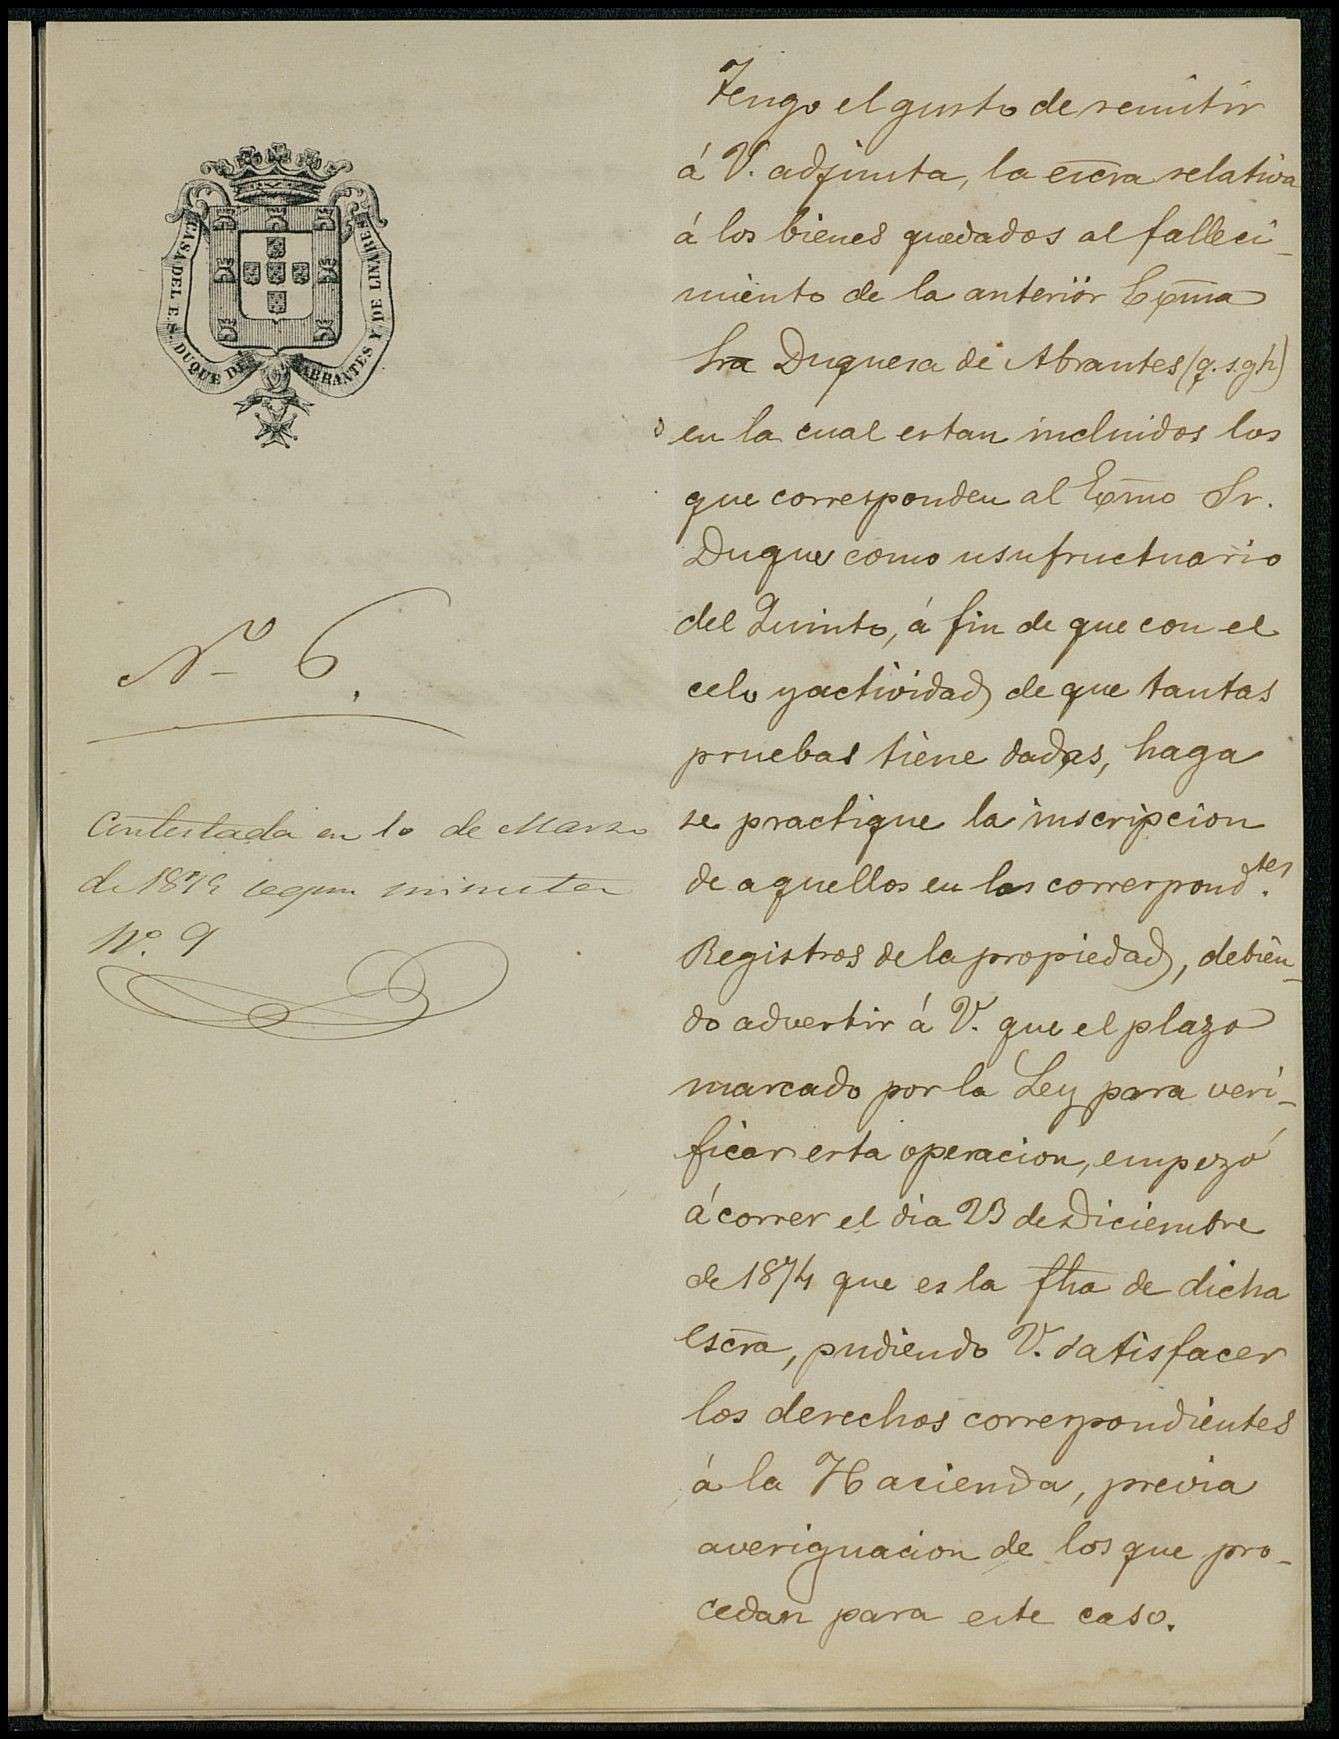 CASA DEL E. S. DUQUE DE ABRANTES Y DE LINARES
Nº 6.
Contestada en 10 de Marzo
de 1875 segun minuta
Nº. 9
Tengo el gusto de remitir
á V. adjunta, la escra relativa
á los bienes quedados al falleci-
miento de la anterior Exma
Sra Duquesa de Abrantes (q. s. g. h)
en la cual estan incluidos los
que corresponden al Exmo Sr.
Duque como usufructuario
del Quinto, á fin de que con el
celo y actividad de que tantas
pruebas tiene dadas, haga
se practique la inscripcion
de aquellos en los correspond.tes
Registros de la propiedad, debien-
do advertir á V. que el plazo
marcado por la Ley para veri-
ficar esta operacion, empezó
á correr el dia 23 de Diciembre
de 1874 que es la fha de dicha
Escra, pudiendo V. satisfacer
los derechos correspondientes
á la Hacienda, previa
averiguacion de los que pro-
cedan para este caso.